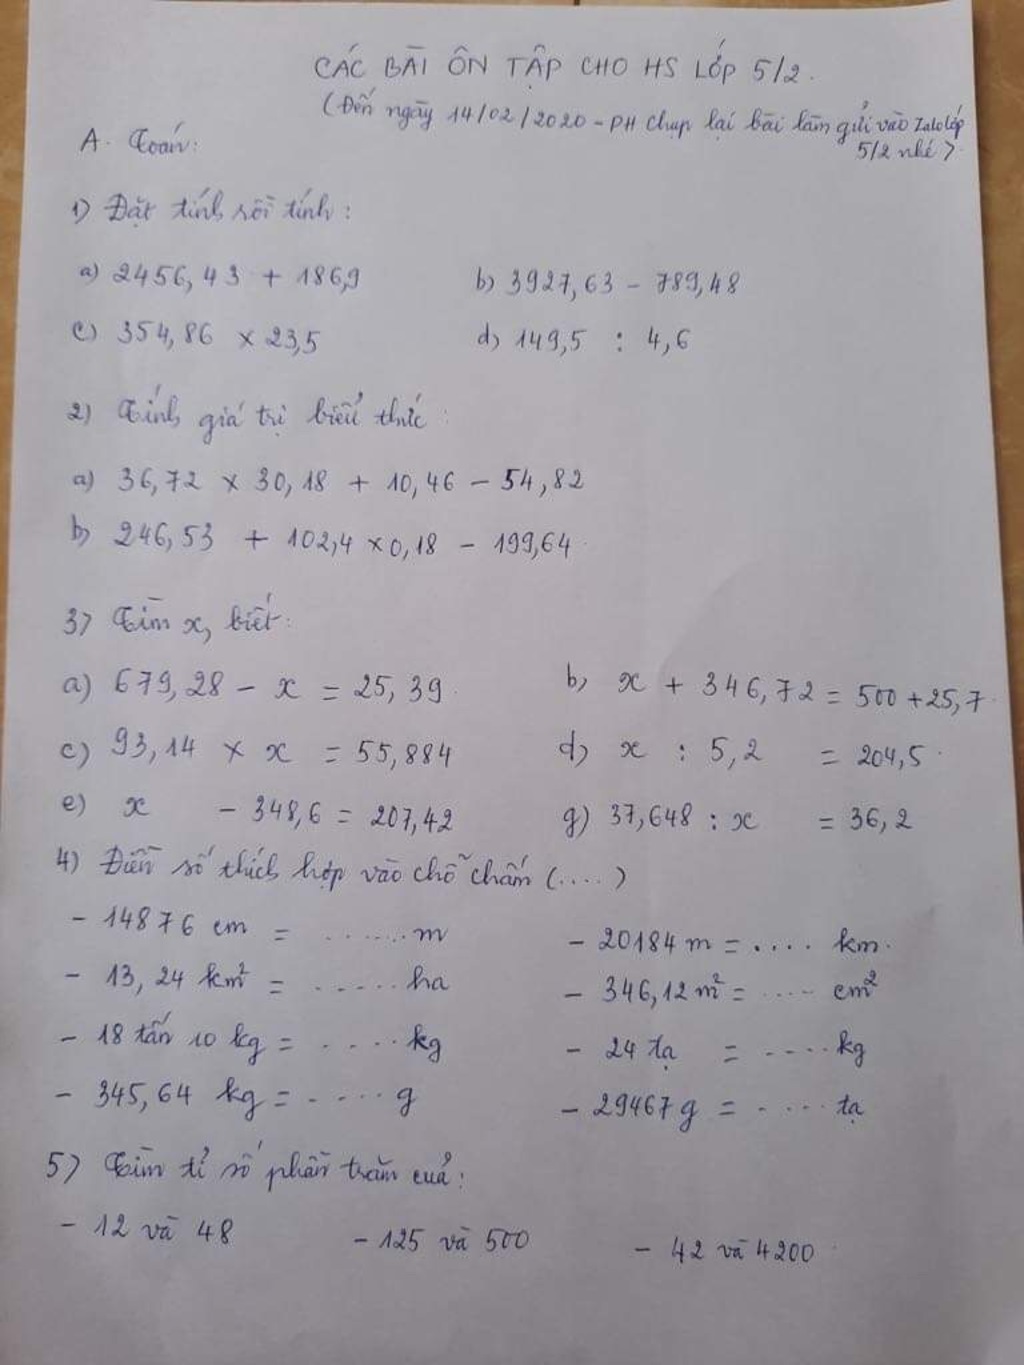 CÁC BÀI ÔN TẬP CHO HS LỚP 5/2.
(Đến ngày 14/02/2020 - PH chụp lại bài làm gửi vào Zalo lớp
5/2 nhé)
A. Toán:
1) Đặt tính rồi tính:
a) 2456,43 + 186,9 b) 3927,63 - 789,48
c) 354,86 x 23,5 d) 149,5 : 4,6
2) Tính giá trị biểu thức:
a) 36,72 x 30,18 + 10,46 - 54,82
b) 246,53 + 102,4 x 0,18 - 199,64
3) Tìm x, biết:
a) 679,28 - x = 25,39 b) x + 346,72 = 500 + 25,7
c) 93,14 x x = 55,884 d) x : 5,2 = 204,5
e) x - 348,6 = 207,42 g) 37,648 : x = 36,2
4) Điền số thích hợp vào chỗ chấm (....)
- 14876 cm = ...... m - 20184 m = .... km.
- 13,24 km² = ...... ha - 346,12 m² = .... cm²
- 18 tấn 10 kg = .... kg - 24 tạ = .... kg
- 345,64 kg = ..... g - 29467 g = ..... tạ
5) Tìm tỉ số phần trăm của:
- 12 và 48 - 125 và 500 - 42 và 4200